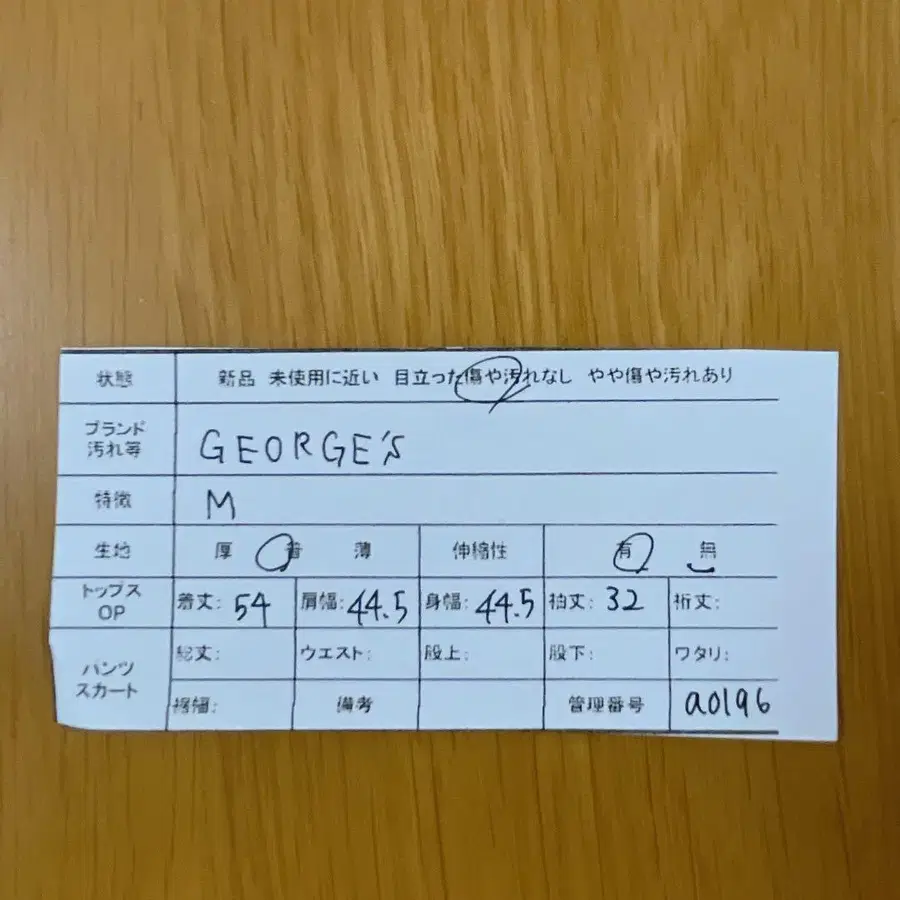 状態 新品 未使用に近い 目立った傷や汚れなし やや傷や汚れあり
ブランド
汚れ等 GEORGE'S
特徴 M
生地 厚 普 薄 伸縮性 有 無
トップス
OP 着丈: 54 肩幅: 44.5 身幅: 44.5 袖丈: 32 裄丈:
パンツ
スカート 総丈: ウエスト: 股上: 股下: ワタリ:
裾幅: 備考 管理番号 a0196